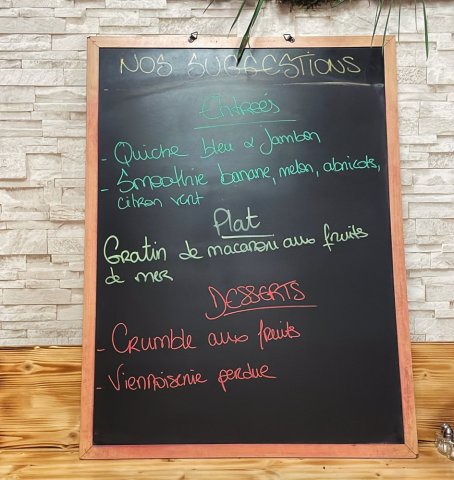 NOS SUGGESTIONS
Entrées
- Quiche bleu & Jambon
- Smoothie banane, melon, abricots,
citron vert
Plat
Gratin de macaroni aux fruits
de mer
DESSERTS
- Crumble aux fruits
- Viennoiserie perdue